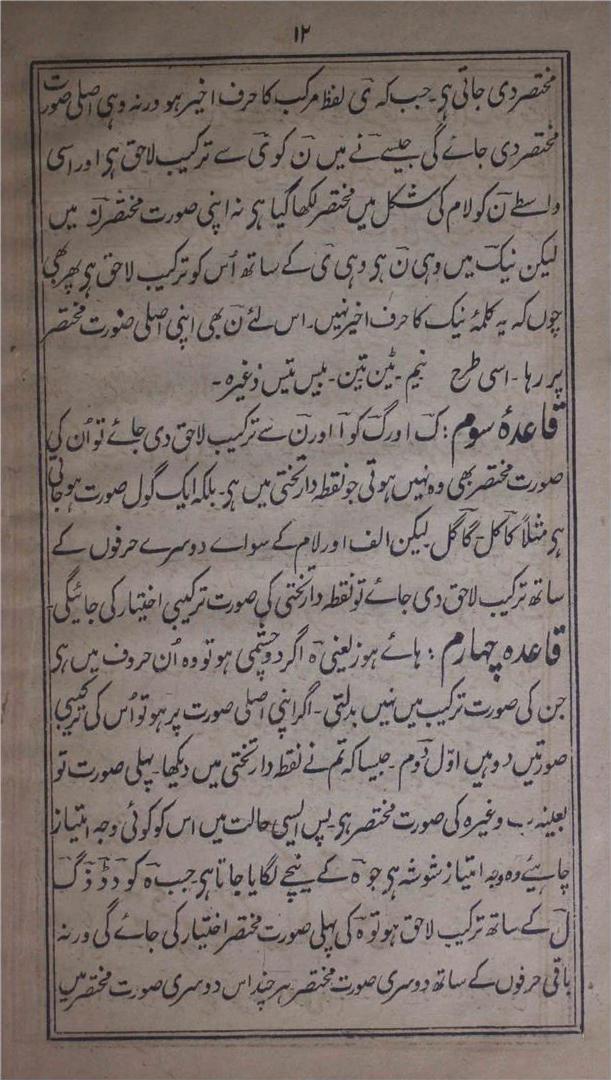 ۱۲
مختصر دی جاتی ہی۔ جب کہ ی لفظ مرکب کا حرف اخیر ہو ورنہ وہی اصلی صورت
مختصر دی جائے گی جیسے نے میں ن کو ی سے ترکیب لاحق ہی اور اسی
واسطے ن کو لام کی شکل میں مختصر لکھا گیا ہی نہ اپنی صورت مختصر ن میں
لیکن نیک میں وہی ن ہی وہی ی کے ساتھ اُس کو ترکیب لاحق ہی پھر بھی
چوں کہ یہ کلمۂ نیک کا حرف اخیر نہیں۔ اس لئے ن بھی اپنی اصلی صورت مختصر
پر رہا۔ اسی طرح نیم۔ ٹین تین۔ بیس تیس وغیرہ۔
قاعدۂ سوم : ک اور گ کو ا اور ل سے ترکیب لاحق دی جائے تو اُن کی
صورت مختصر بھی وہ نہیں ہوتی جو نقطہ دار تختی میں ہی۔ بلکہ ایک گول صورت ہو جاتی
ہی مثلاً کا کل۔ گا گل لیکن الف اور لام کے سواے دوسرے حرفوں کے
ساتھ ترکیب لاحق دی جائے تو نقطہ دار تختی کی صورت ترکیبی اختیار کی جائیگی۔
قاعدہ چہارم : ہائے ہوز یعنی ہ اگر دو چشمی ہو تو وہ اُن حروف میں ہی
جن کی صورت ترکیب میں نہیں بدلتی۔ اگر اپنی اصلی صورت پر ہو تو اُس کی ترکیبی
صورتیں دو ہیں اوّل دوم۔ جیسا کہ تم نے نقطہ دار تختی میں دیکھا۔ پہلی صورت تو
بعینہ ب وغیرہ کی صورت مختصر ہی۔ پس ایسی حالت میں اس کو کوئی وجہ امتیاز
چاہیئے وہ وجہ امتیاز شوشہ ہی جو ہ کے نیچے لگایا جاتا ہی۔ جب ہ کو د ڈ ذ گ
ل کے ساتھ ترکیب لاحق ہو تو ہ کی پہلی صورت مختصر اختیار کی جائے گی ورنہ
باقی حرفوں کے ساتھ دوسری صورت مختصر ہر چند اس دوسری صورت مختصر میں